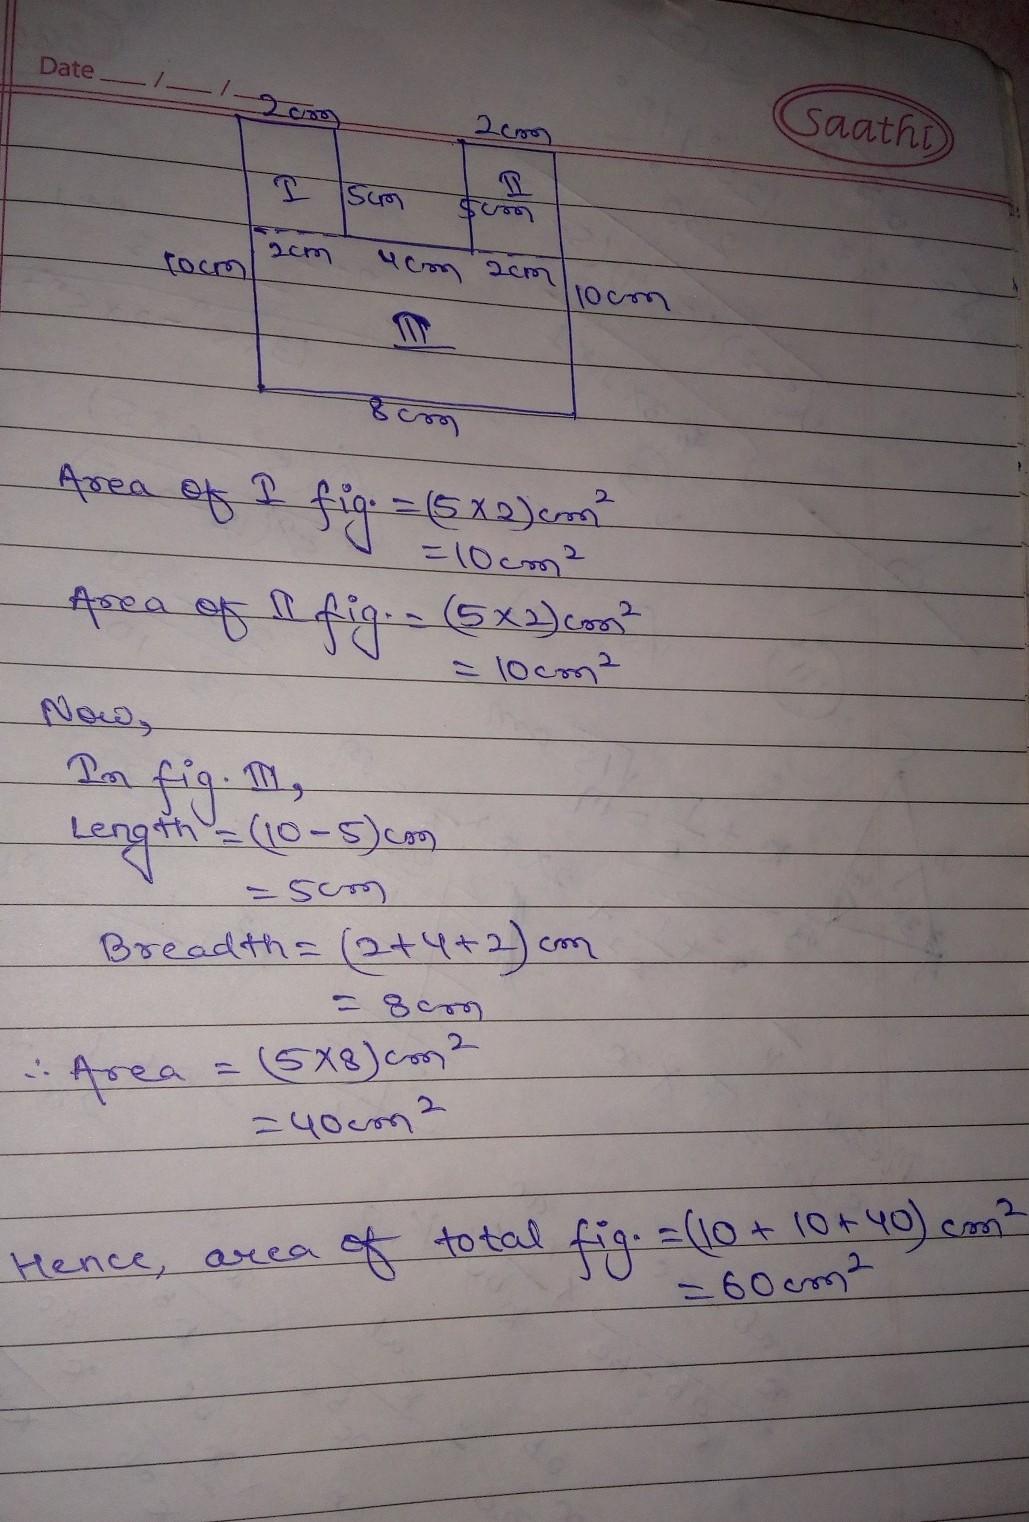 Date __/__/__
saathi
2cm
2cm
I
5cm
II
5cm
10cm
2cm
4cm
2cm
10cm
III
8cm
Area of I fig. = (5×2)cm²
= 10cm²
Area of II fig. = (5×2)cm²
= 10cm²
Now,
In fig. III,
Length = (10-5)cm
= 5cm
Breadth = (2+4+2) cm
= 8cm
∴ Area = (5×8)cm²
= 40cm²
Hence, area of total fig. = (10 + 10 + 40) cm²
= 60cm²